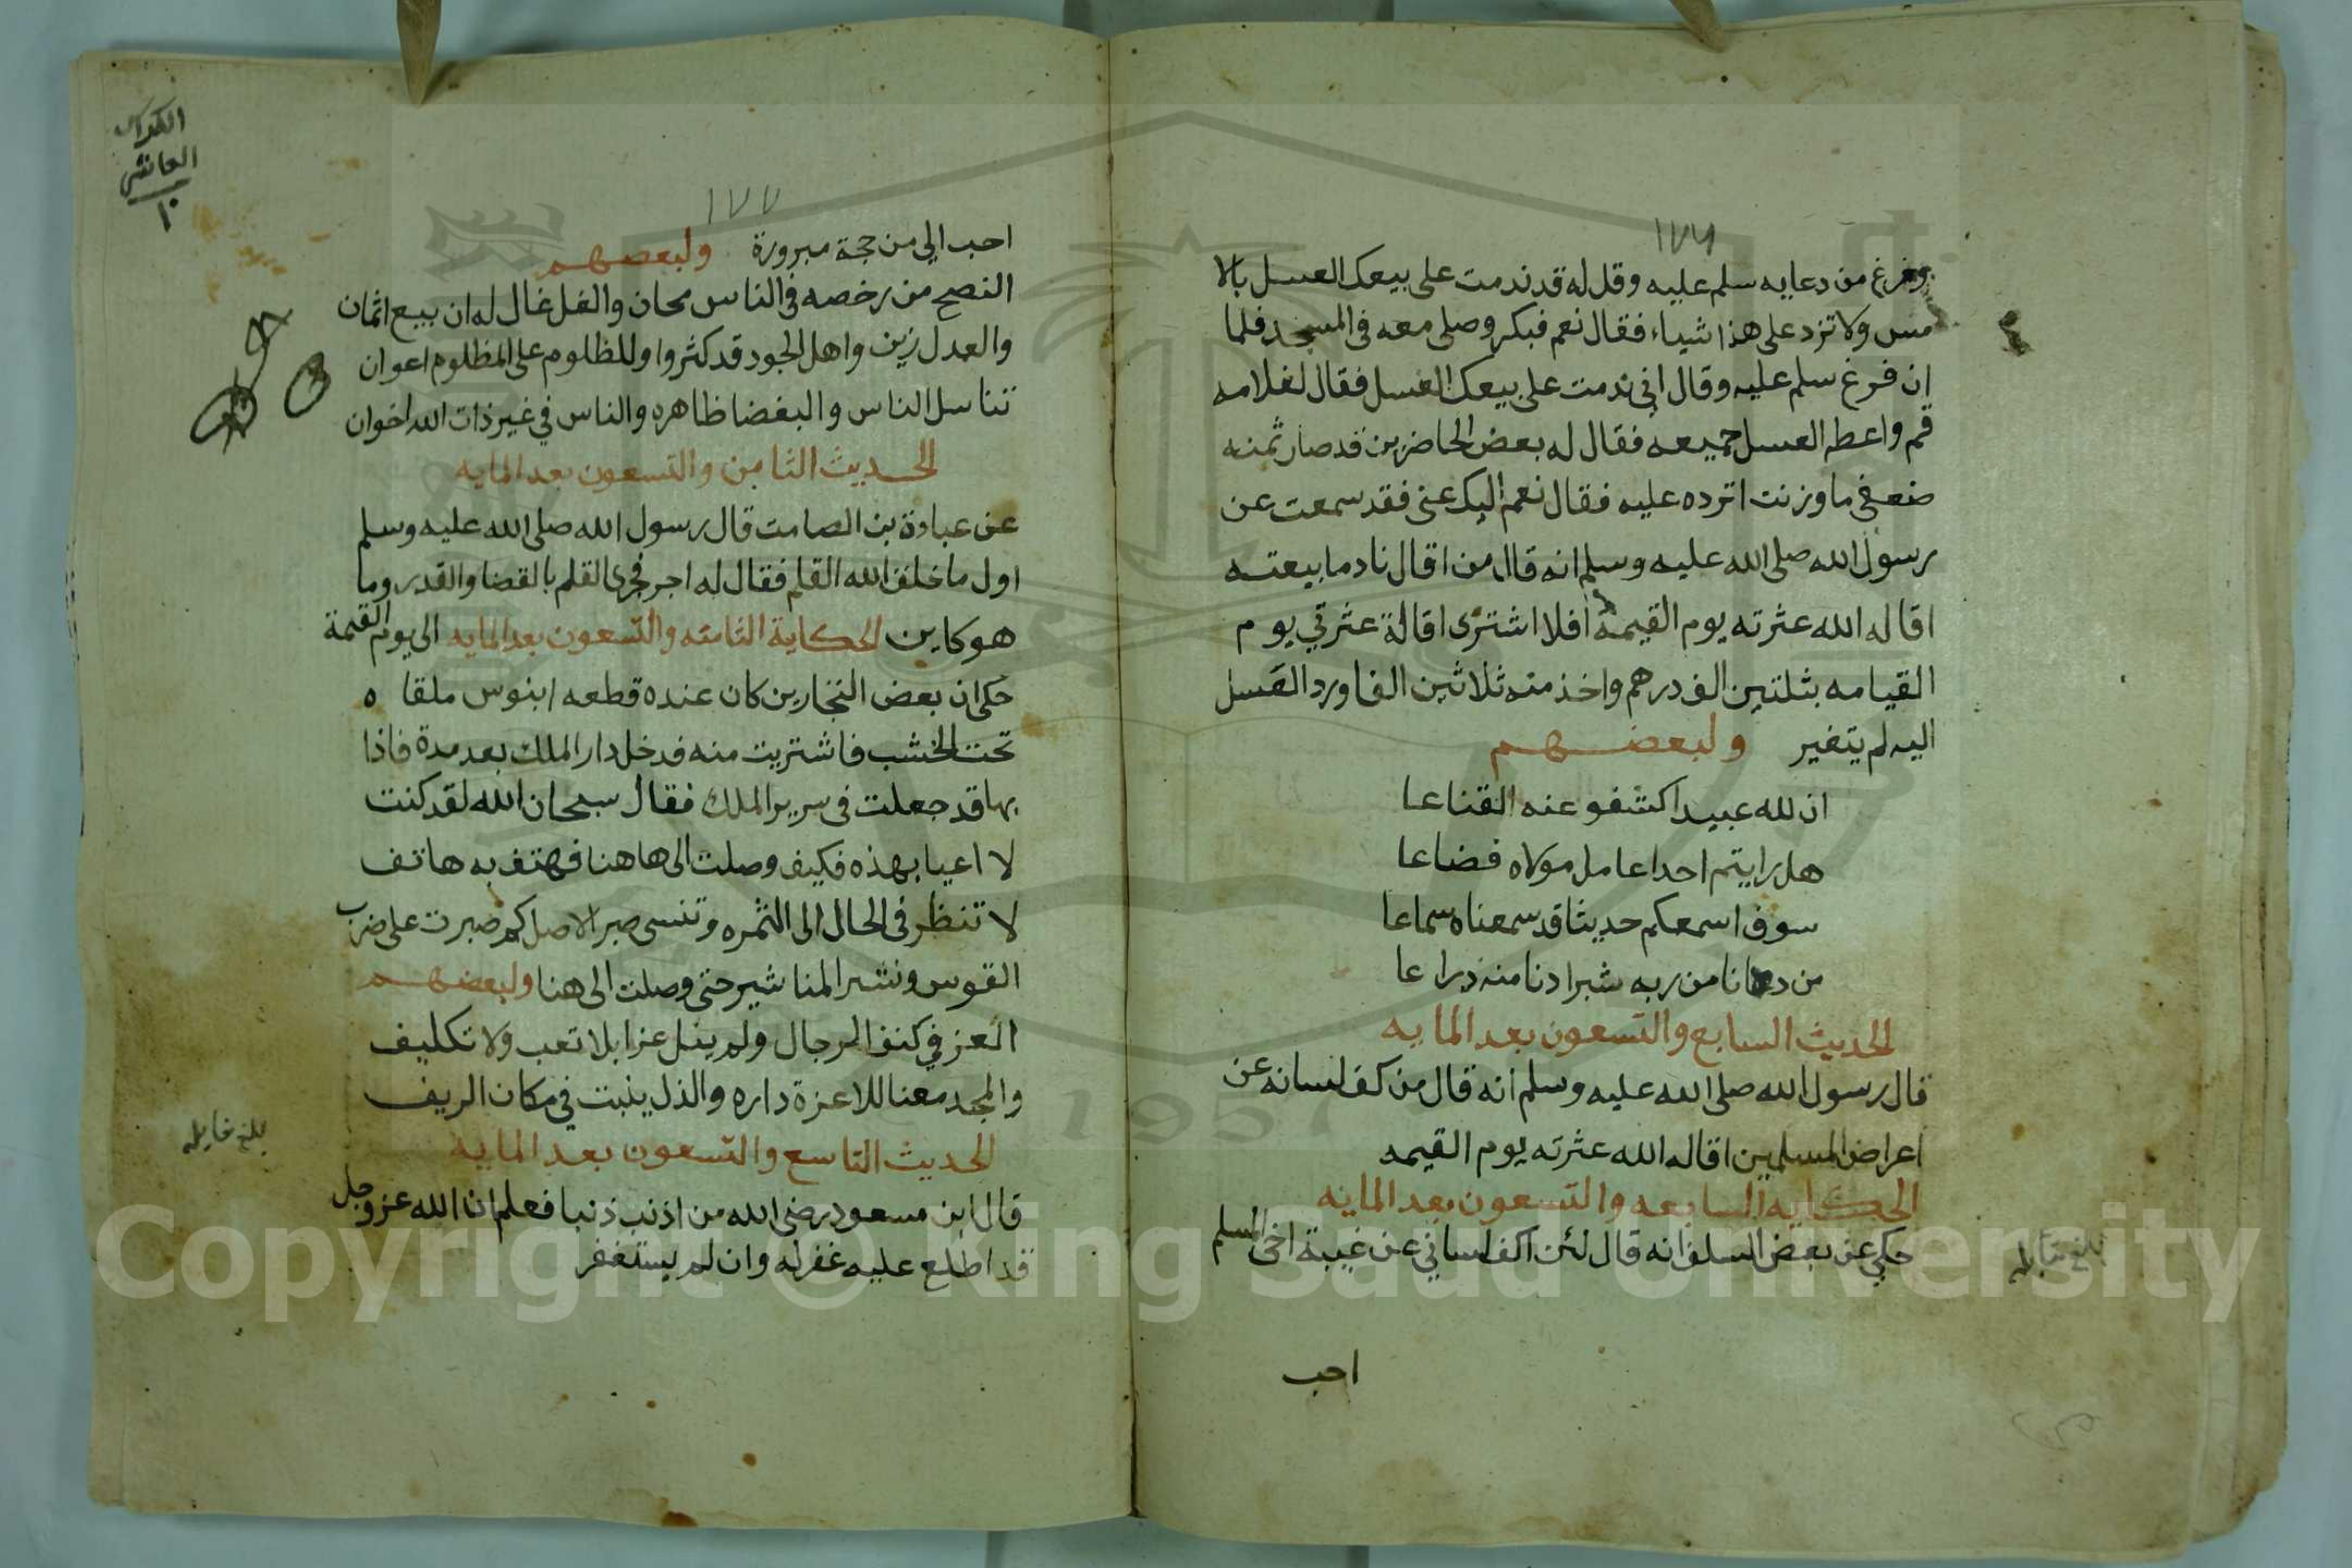 ١٧٦
وفرغ من دعايه سلم عليه وقل له قد ندمت على بيعك العسل بالا
مس ولا تزد على هذا شياء فقال نعم فبكر وصلى معه في المسجد فلما
ان فرغ سلم عليه وقال اني ندمت على بيعك العسل فقال لغلامه
قم واعطه العسل جميعه فقال له بعض الحاضرين قد صار ثمنه
ضعفي ما وزنت اترده عليه فقال نعم اليك عني فقد سمعت عن
رسول الله صلى الله عليه وسلم انه قال من اقال نادما بيعته
اقاله الله عثرته يوم القيمة افلا اشترى اقالة عثرتي يوم
القيامه بثلثين الف درهم واخذ منه ثلاثين الفا ورد العسل
اليه لم يتغير ولبعضهم
ان لله عبيدا كشفو عنه القناعا
هل رايتم احدا عامل مولاه فضاعا
سوف اسمعكم حديثا قد سمعناه سماعا
من دنا من ربه شبرا دنا منه ذراعا
الحديث السابع والتسعون بعد المايه
قال رسول الله صلى الله عليه وسلم انه قال من كف لسانه عن
اعراض المسلمين اقاله الله عثرته يوم القيمه
الحكايه السابعه والتسعون بعد المايه
حكي عن بعض السلف انه قال لئن اكف لساني عن غيبة اخى المسلم
بلغ مقابله
احب
الكراس
العاشر
١٠
١٧٧
احب الي من حجة مبرورة ولبعضهم
النصح من رخصه في الناس مجان والغل غال له ان بيع اثمان
والعدل زين واهل الجود قد كثروا وللظلوم على المظلوم اعوان
تناسل الناس والبغضا ظاهره والناس في غير ذات الله اخوان
الحديث الثامن والتسعون بعد المايه
عن عبادة بن الصامت قال رسول الله صلى الله عليه وسلم
اول ما خلق الله القلم فقال له اجر فجرى القلم بالقضا والقدر وما
هو كاين الحكاية الثامنه والتسعون بعد المايه الى يوم القيمة
حكي ان بعض النجارين كان عنده قطعه ابنوس ملقا ه
تحت الخشب فاشتريت منه فدخل دار الملك بعد مدة فاذا
بها قد جعلت في سرير الملك فقال سبحان الله لقد كنت
لا اعيا بهذه فكيف وصلت الى هاهنا فهتف به هاتف
لا تنظر في الحال الى الثمره وتنسى صبر الاصل كم صبرت على ضرب
القوس ونشر المناشير حتى وصلت الى هنا ولبعضهم
العز في كنف الرجال ولم ينل عزا بلا تعب ولا تكليف
والمجد معنا للاعزة داره والذل ينبت في مكان الريف
الحديث التاسع والتسعون بعد المايه
قال ابن مسعود رضي الله من اذنب ذنبا فعلم ان الله عز وجل
قد اطلع عليه غفر له وان لم يستغفر
بلغ مقابله
Copyright © King Saud University
1957